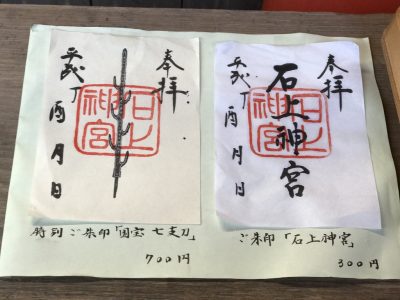 奉拝
平成丁酉月日
石上神宮
特別ご朱印「国宝七支刀」
700円
奉拝
石上神宮
平成丁酉月日
石上神宮
ご朱印「石上神宮」
300円